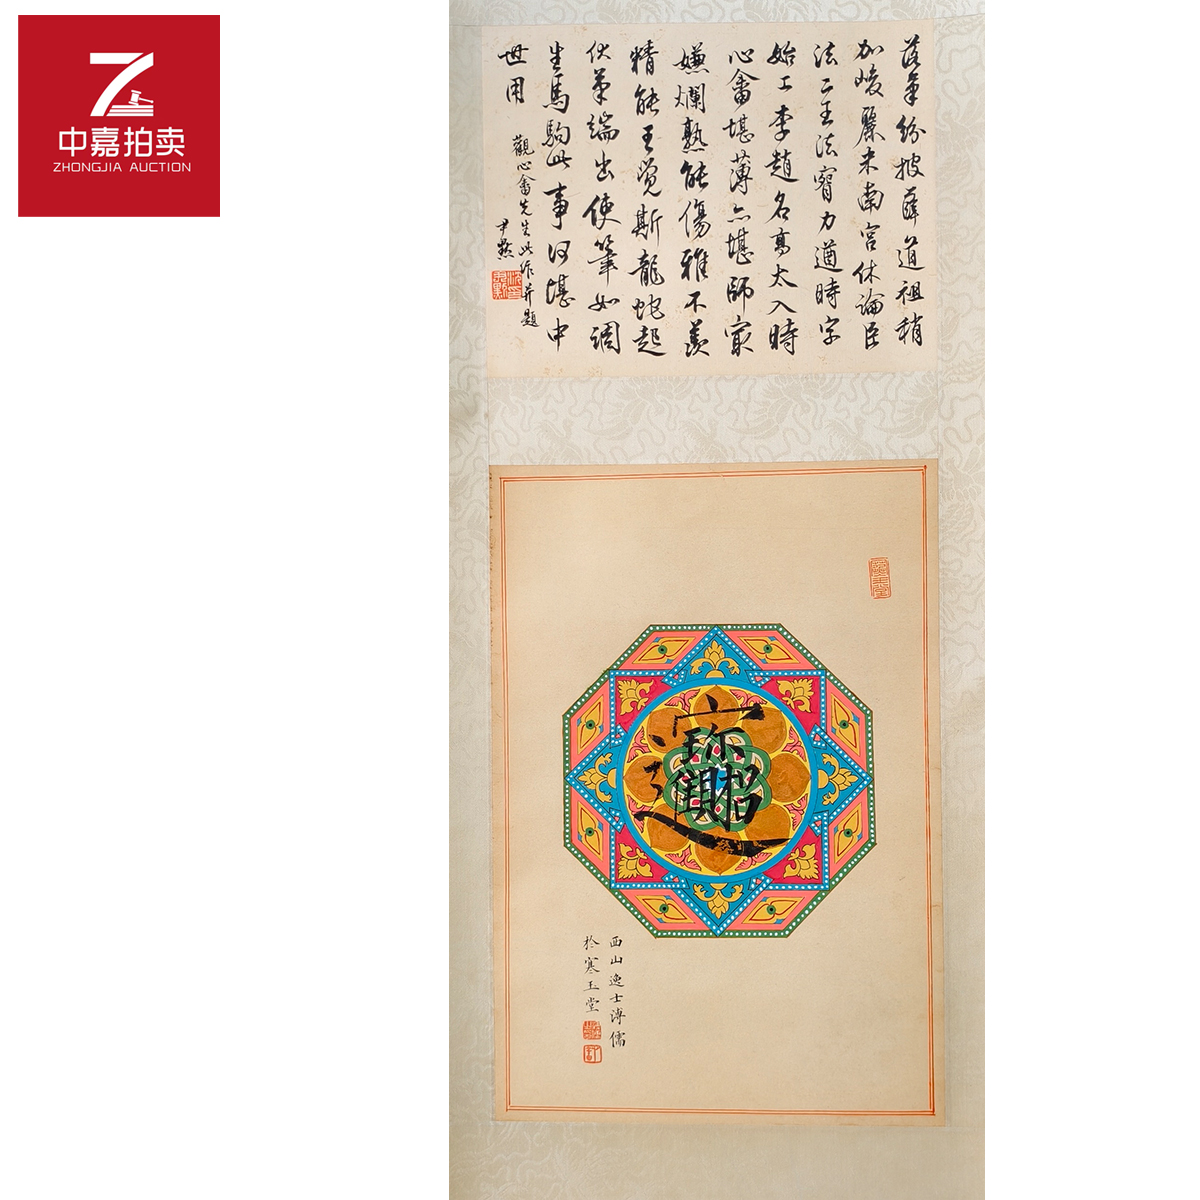 中嘉拍卖
ZHONGJIA AUCTION
落筆紛披薛道祖稍
加峻麗米南宮休論臣
法二王法腎力遒時字
始工李趙名高太入時
心畬堪薄亦堪師寂
嫌爛熟能傷雅不羨
精能王覺斯龍蛇起
伏筆端出使筆如調
生馬駒此事何堪中
世用
觀心畬先生此作并題
尹默
招財進寶
西山逸士溥儒
於寒玉堂